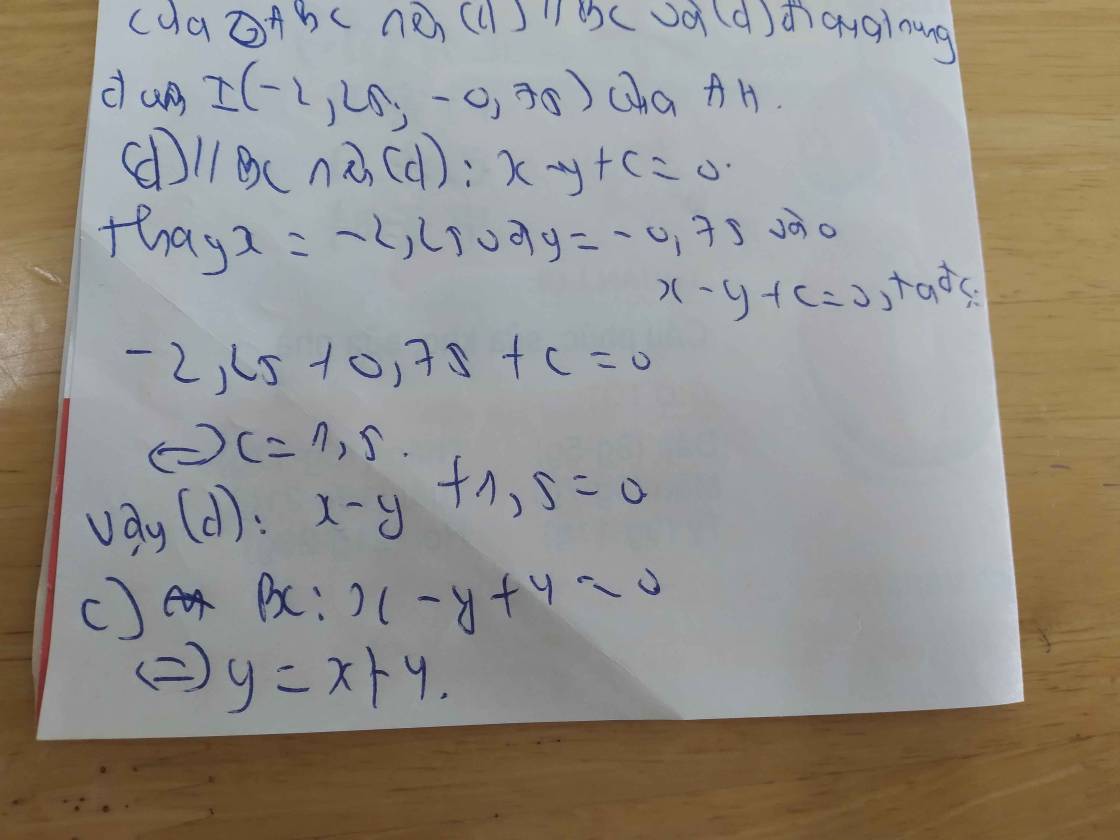 của △ABC nên (d) // BC và (d) đi qua trung
điểm I(-2,25; -0,75) của AH.
(d) // BC nên (d): x-y+c=0.
thay x = -2,25 và y = -0,75 vào
x-y+c=0, ta đc:
-2,25+0,75+c=0
⇔ c=1,5.
vậy (d): x-y+1,5=0
c) BC: x-y+4=0
⇔ y=x+4.